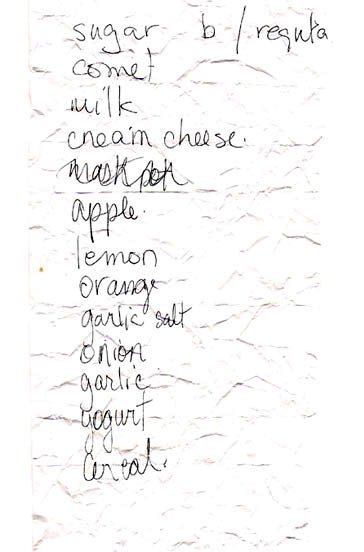 sugar b / regula
comet
milk
cream cheese.
apple.
lemon
orange
garlic salt
onion
garlic
yogurt
cereal.